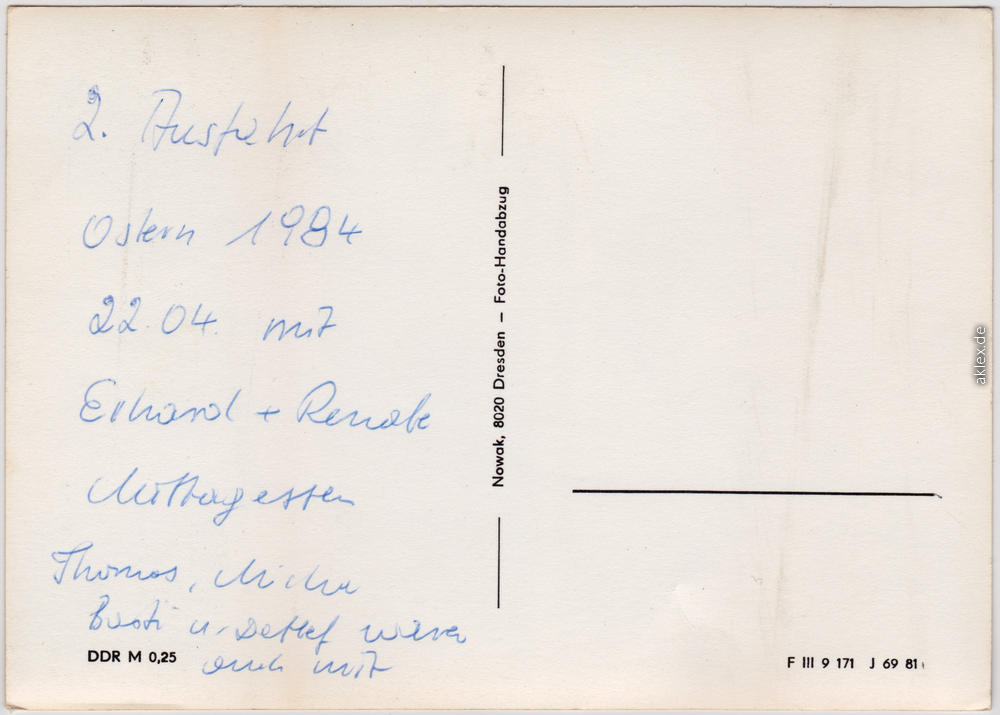 2. Ausfahrt
Ostern 1984
22.04. mit
Erhard + Renate
Mittagessen
Thomas, Micha
Basti u. Detlef waren
auch mit
DDR M 0,25
Nowak, 8020 Dresden — Foto-Handabzug
F III 9 171 J 69 81
aklex.de